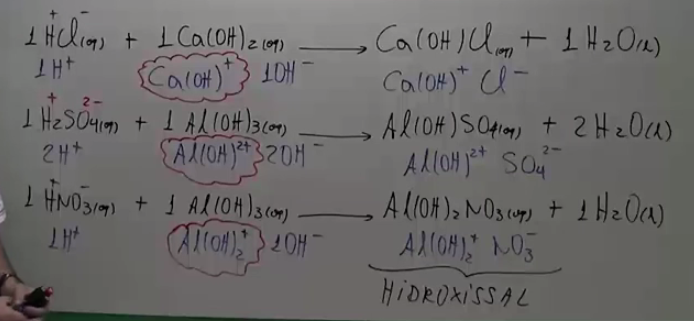 1 H⁺Cl⁻(aq) + 1 Ca(OH)₂(aq) ⟶ Ca(OH)Cl(aq) + 1 H₂O(l)
1H⁺ Ca(OH)⁺ 1OH⁻ Ca(OH)⁺ Cl⁻
1 H₂⁺SO₄²⁻(aq) + 1 Al(OH)₃(aq) ⟶ Al(OH)SO₄(aq) + 2 H₂O(l)
2H⁺ Al(OH)²⁺ 2OH⁻ Al(OH)²⁺ SO₄²⁻
1 H⁺NO₃⁻(aq) + 1 Al(OH)₃(aq) ⟶ Al(OH)₂NO₃(aq) + 1 H₂O(l)
1H⁺ Al(OH)₂⁺ 1OH⁻ Al(OH)₂⁺ NO₃⁻
HIDROXISSAL